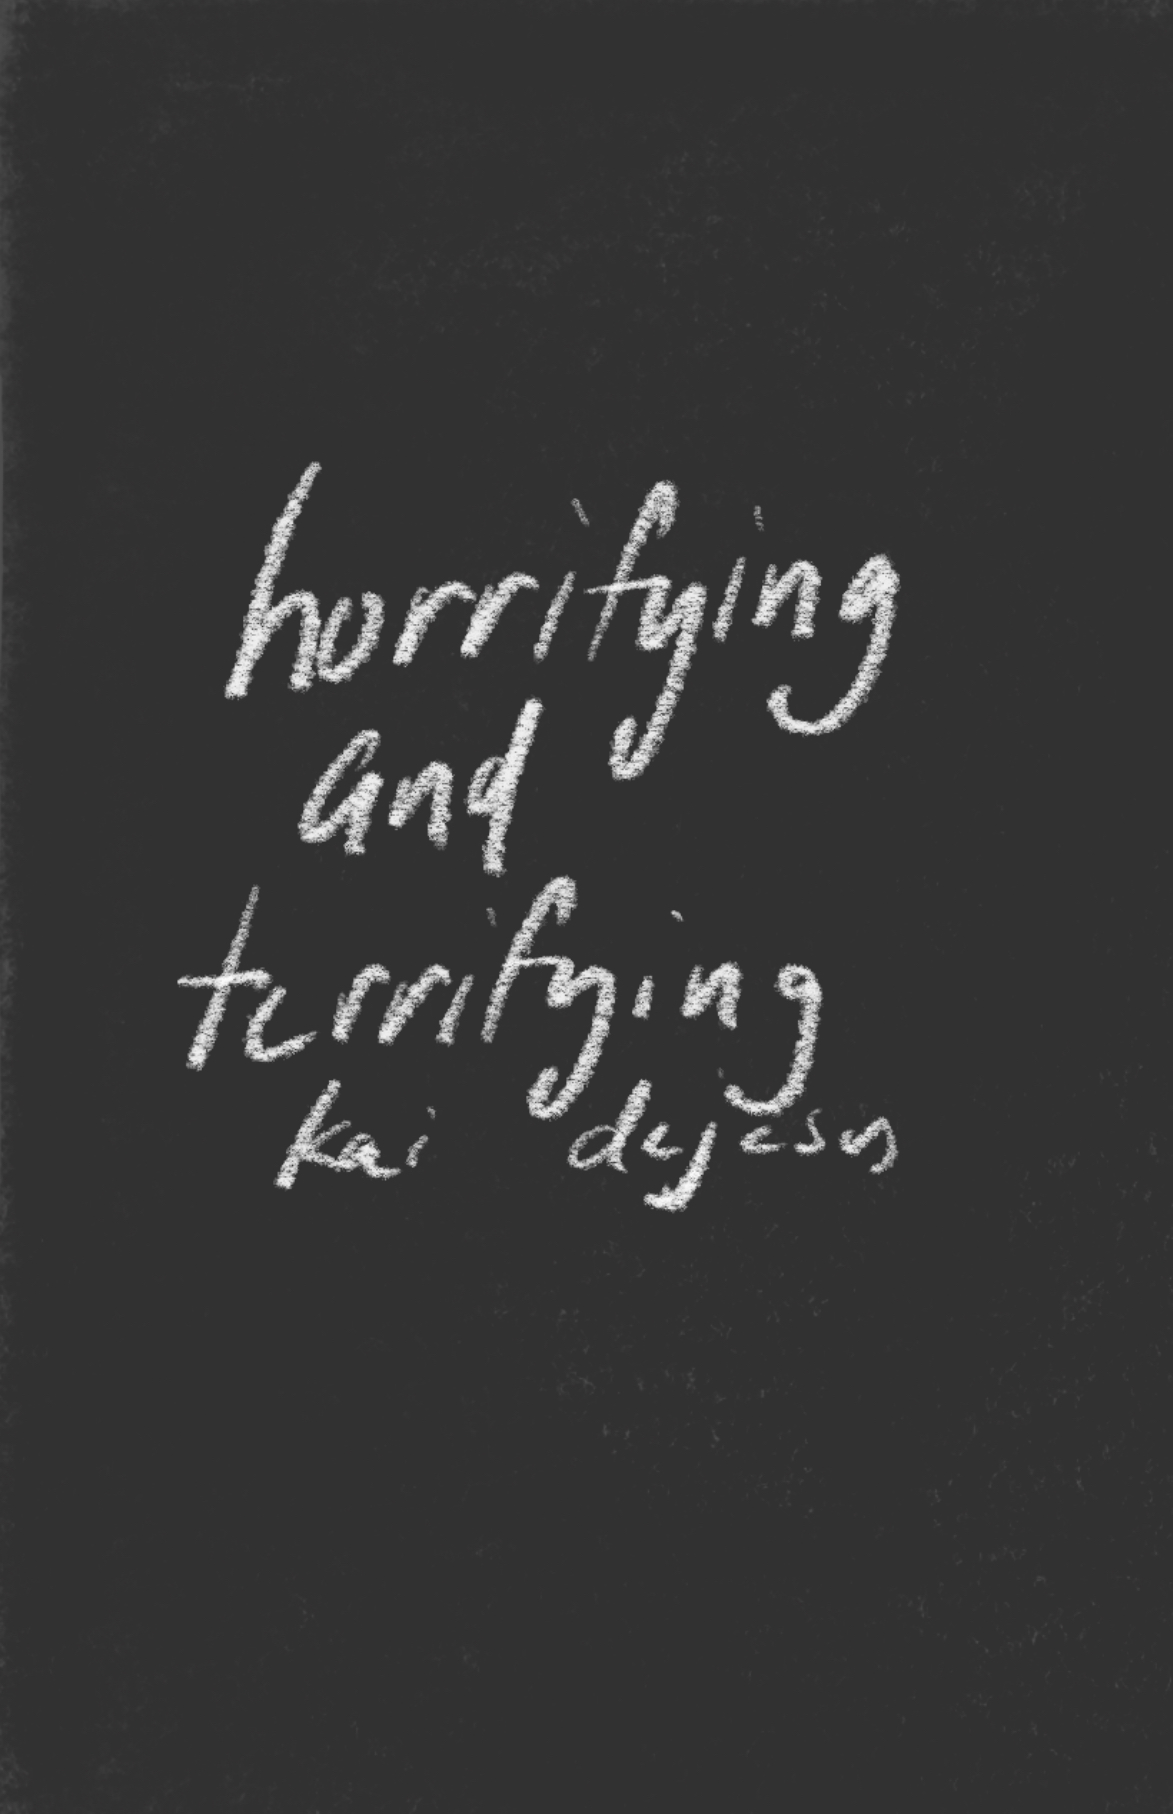 horrifying
and
terrifying
kai dejesus